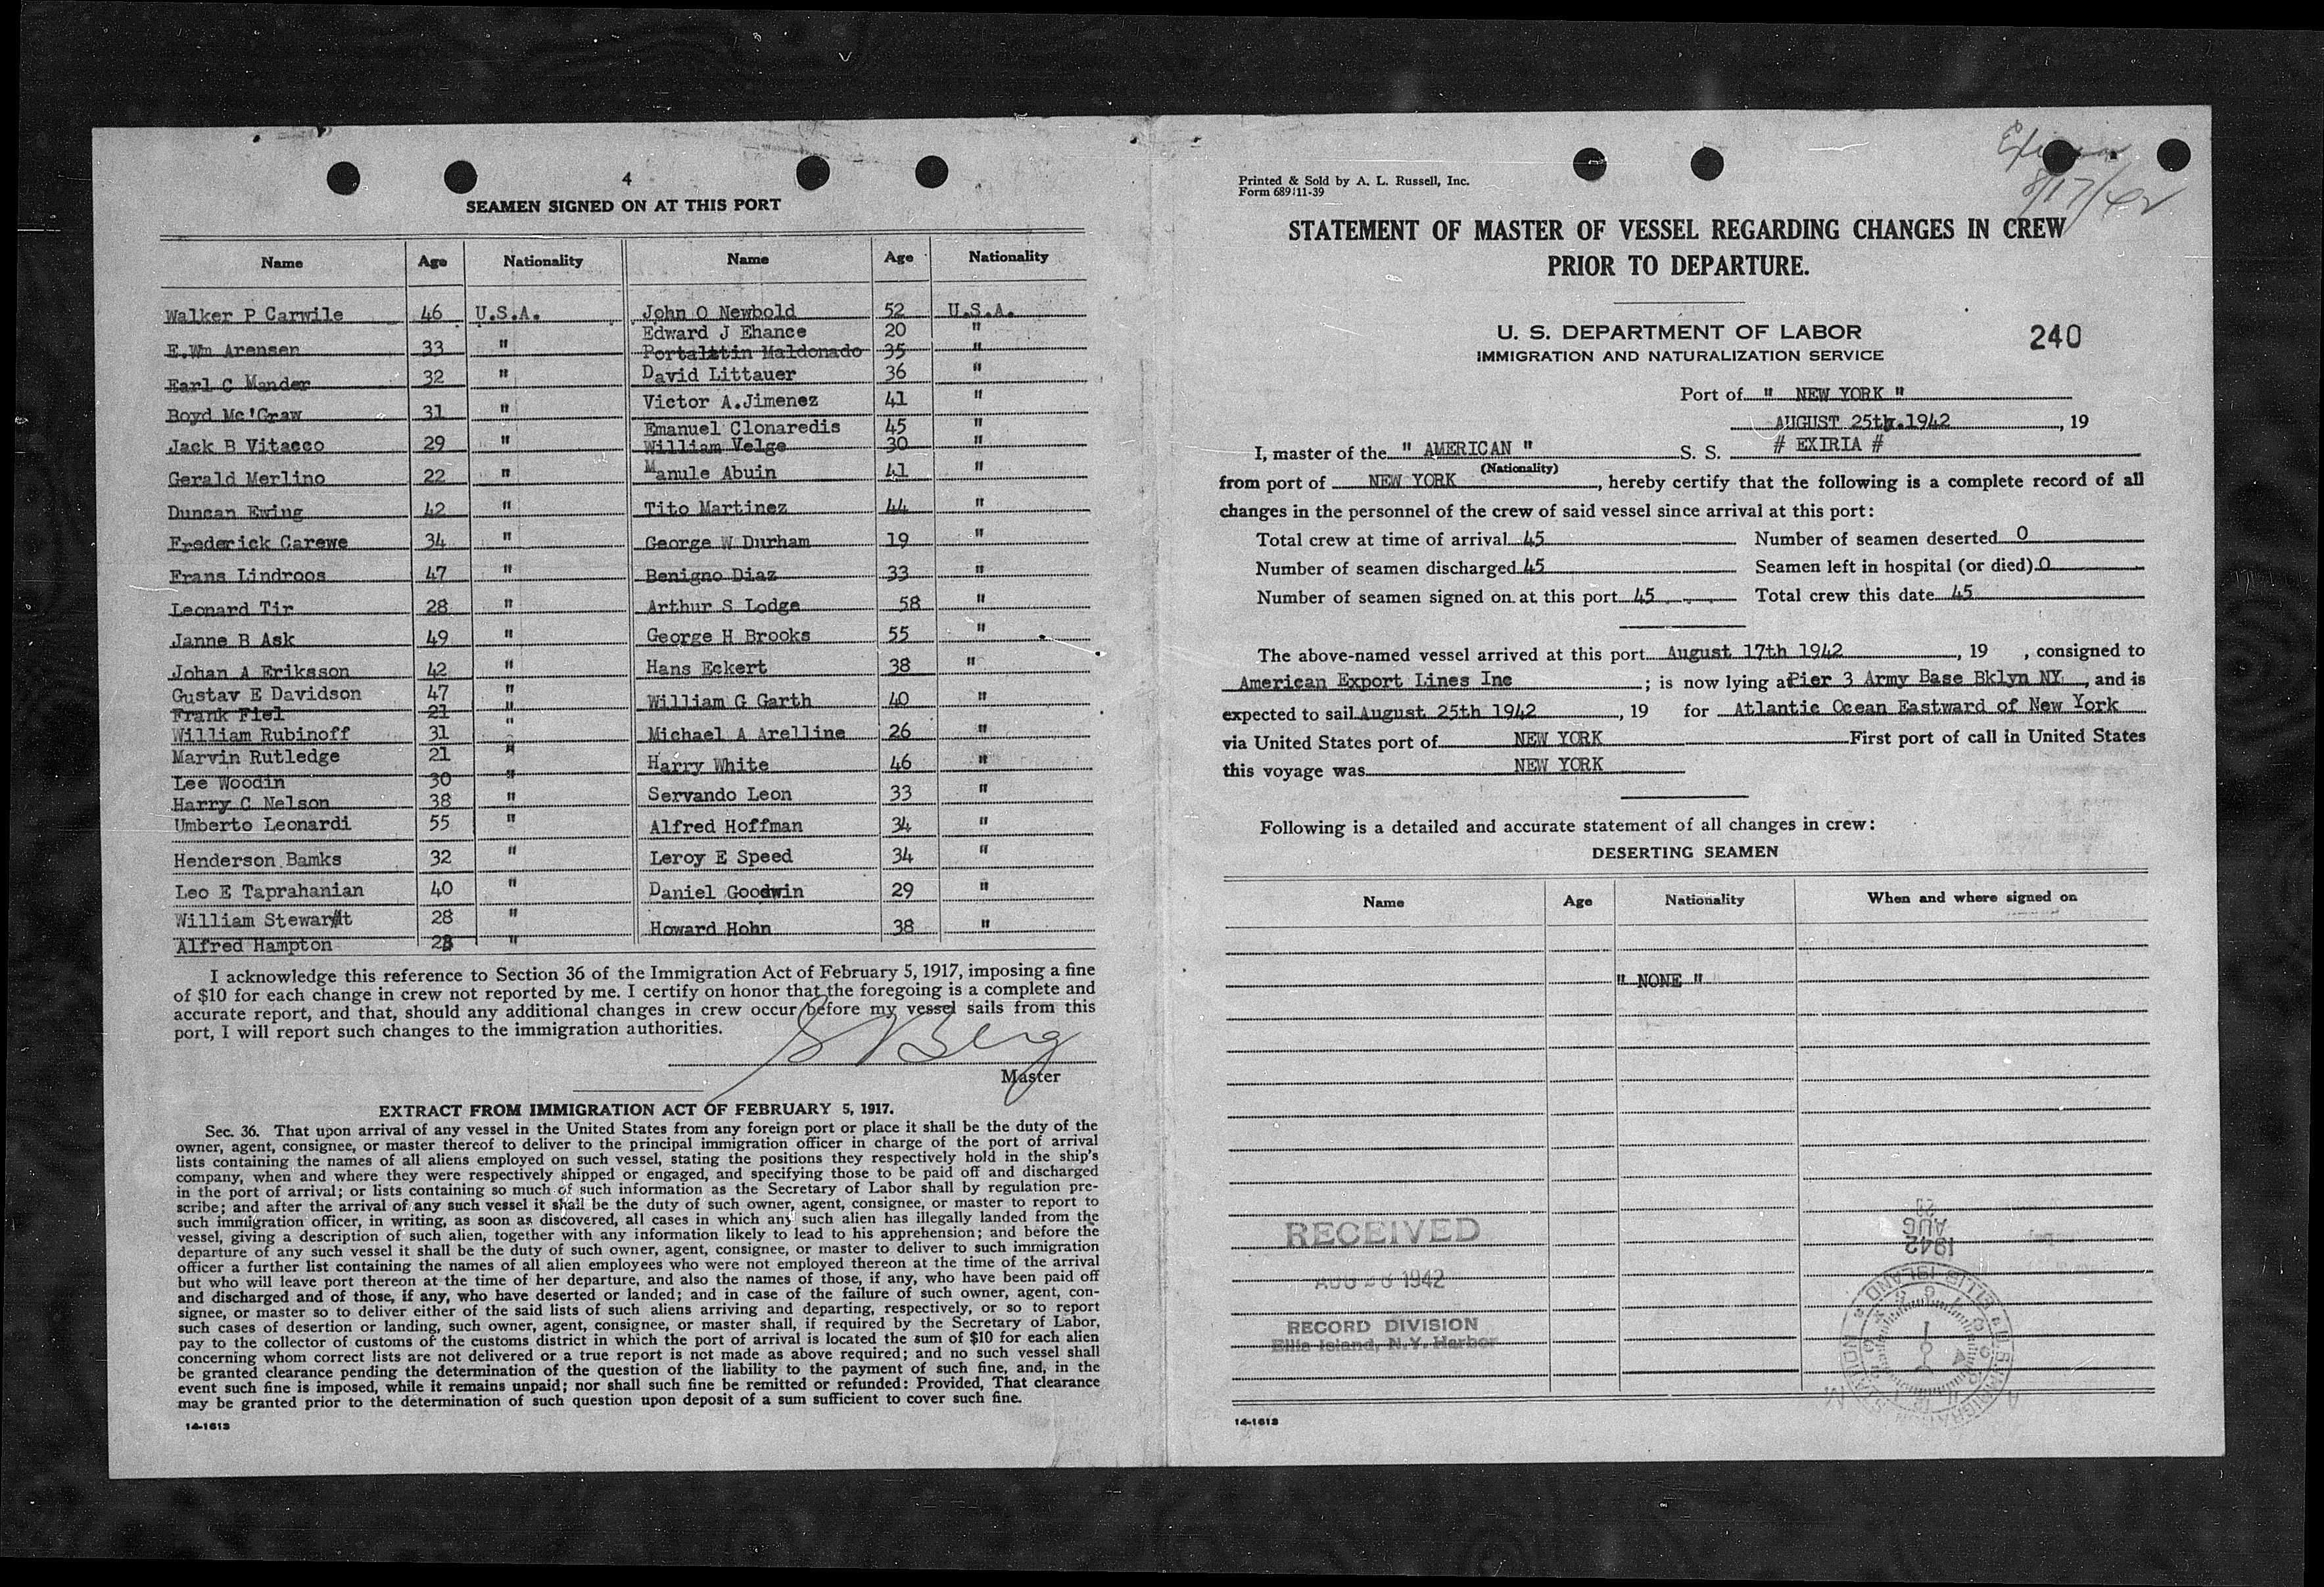 4
SEAMEN SIGNED ON AT THIS PORT
Name Age Nationality Name Age Nationality
Walker P Carwile 46 U.S.A. John O Newbold 52 U.S.A.
Edward J Ehance 20 "
E.Wm Arensen 33 " Portalttin Maldonado 35 "
Earl C Mander 32 " David Littauer 36 "
Boyd Mc'Graw 31 " Victor A.Jimenez 41 "
Emanuel Clonaredis 45 "
Jack B Vitacco 29 " William Velge 30 "
Gerald Merlino 22 " Manule Abuin 41 "
Duncan Ewing 42 " Tito Martinez 44 "
Frederick Carewe 34 " George W Durham 19 "
Frans Lindroos 47 " Benigno Diaz 33 "
Leonard Tir 28 " Arthur S Lodge 58 "
Janne B Ask 49 " George H Brooks 55 "
Johan A Eriksson 42 " Hans Eckert 38 "
Gustav E Davidson 47 " William G Garth 40 "
Frank Fiel 21 "
William Rubinoff 31 " Michael A Arelline 26 "
Marvin Rutledge 21 " Harry White 46 "
Lee Woodin 30 "
Harry C Nelson 38 " Servando Leon 33 "
Umberto Leonardi 55 " Alfred Hoffman 34 "
Henderson Bamks 32 " Leroy E Speed 34 "
Leo E Taprahanian 40 " Daniel Goodwin 29 "
William Stewart 28 " Howard Hohn 38 "
Alfred Hampton "
I acknowledge this reference to Section 36 of the Immigration Act of February 5, 1917, imposing a fine
of $10 for each change in crew not reported by me. I certify on honor that the foregoing is a complete and
accurate report, and that, should any additional changes in crew occur before my vessel sails from this
port, I will report such changes to the immigration authorities.
S Berg
Master
EXTRACT FROM IMMIGRATION ACT OF FEBRUARY 5, 1917.
Sec. 36. That upon arrival of any vessel in the United States from any foreign port or place it shall be the duty of the
owner, agent, consignee, or master thereof to deliver to the principal immigration officer in charge of the port of arrival
lists containing the names of all aliens employed on such vessel, stating the positions they respectively hold in the ship's
company, when and where they were respectively shipped or engaged, and specifying those to be paid off and discharged
in the port of arrival; or lists containing so much of such information as the Secretary of Labor shall by regulation pre-
scribe; and after the arrival of any such vessel it shall be the duty of such owner, agent, consignee, or master to report to
such immigration officer, in writing, as soon as discovered, all cases in which any such alien has illegally landed from the
vessel, giving a description of such alien, together with any information likely to lead to his apprehension; and before the
departure of any such vessel it shall be the duty of such owner, agent, consignee, or master to deliver to such immigration
officer a further list containing the names of all alien employees who were not employed thereon at the time of the arrival
but who will leave port thereon at the time of her departure, and also the names of those, if any, who have been paid off
and discharged and of those, if any, who have deserted or landed; and in case of the failure of such owner, agent, con-
signee, or master so to deliver either of the said lists of such aliens arriving and departing, respectively, or so to report
such cases of desertion or landing, such owner, agent, consignee, or master shall, if required by the Secretary of Labor,
pay to the collector of customs of the customs district in which the port of arrival is located the sum of $10 for each alien
concerning whom correct lists are not delivered or a true report is not made as above required; and no such vessel shall
be granted clearance pending the determination of the question of the liability to the payment of such fine, and, in the
event such fine is imposed, while it remains unpaid; nor shall such fine be remitted or refunded: Provided, That clearance
may be granted prior to the determination of such question upon deposit of a sum sufficient to cover such fine.
14-1613
8/17/42
Printed & Sold by A. L. Russell, Inc.
Form 689 11-39
STATEMENT OF MASTER OF VESSEL REGARDING CHANGES IN CREW
PRIOR TO DEPARTURE.
U. S. DEPARTMENT OF LABOR
IMMIGRATION AND NATURALIZATION SERVICE
240
Port of " NEW YORK "
AUGUST 25th.1942, 19
I, master of the " AMERICAN " S. S. # EXIRIA #
(Nationality)
from port of NEW YORK, hereby certify that the following is a complete record of all
changes in the personnel of the crew of said vessel since arrival at this port:
Total crew at time of arrival 45 Number of seamen deserted 0
Number of seamen discharged 45 Seamen left in hospital (or died) 0
Number of seamen signed on at this port 45 Total crew this date 45
The above-named vessel arrived at this port August 17th 1942, 19 , consigned to
American Export Lines Inc ; is now lying at Pier 3 Army Base Bklyn NY, and is
expected to sail August 25th 1942, 19 for Atlantic Ocean Eastward of New York
via United States port of NEW YORK First port of call in United States
this voyage was NEW YORK
Following is a detailed and accurate statement of all changes in crew:
DESERTING SEAMEN
Name Age Nationality When and where signed on
" NONE "
RECEIVED
AUG 1942
RECORD DIVISION
Ellis Island, N.Y. Harbor
AUG
1942
14-1613